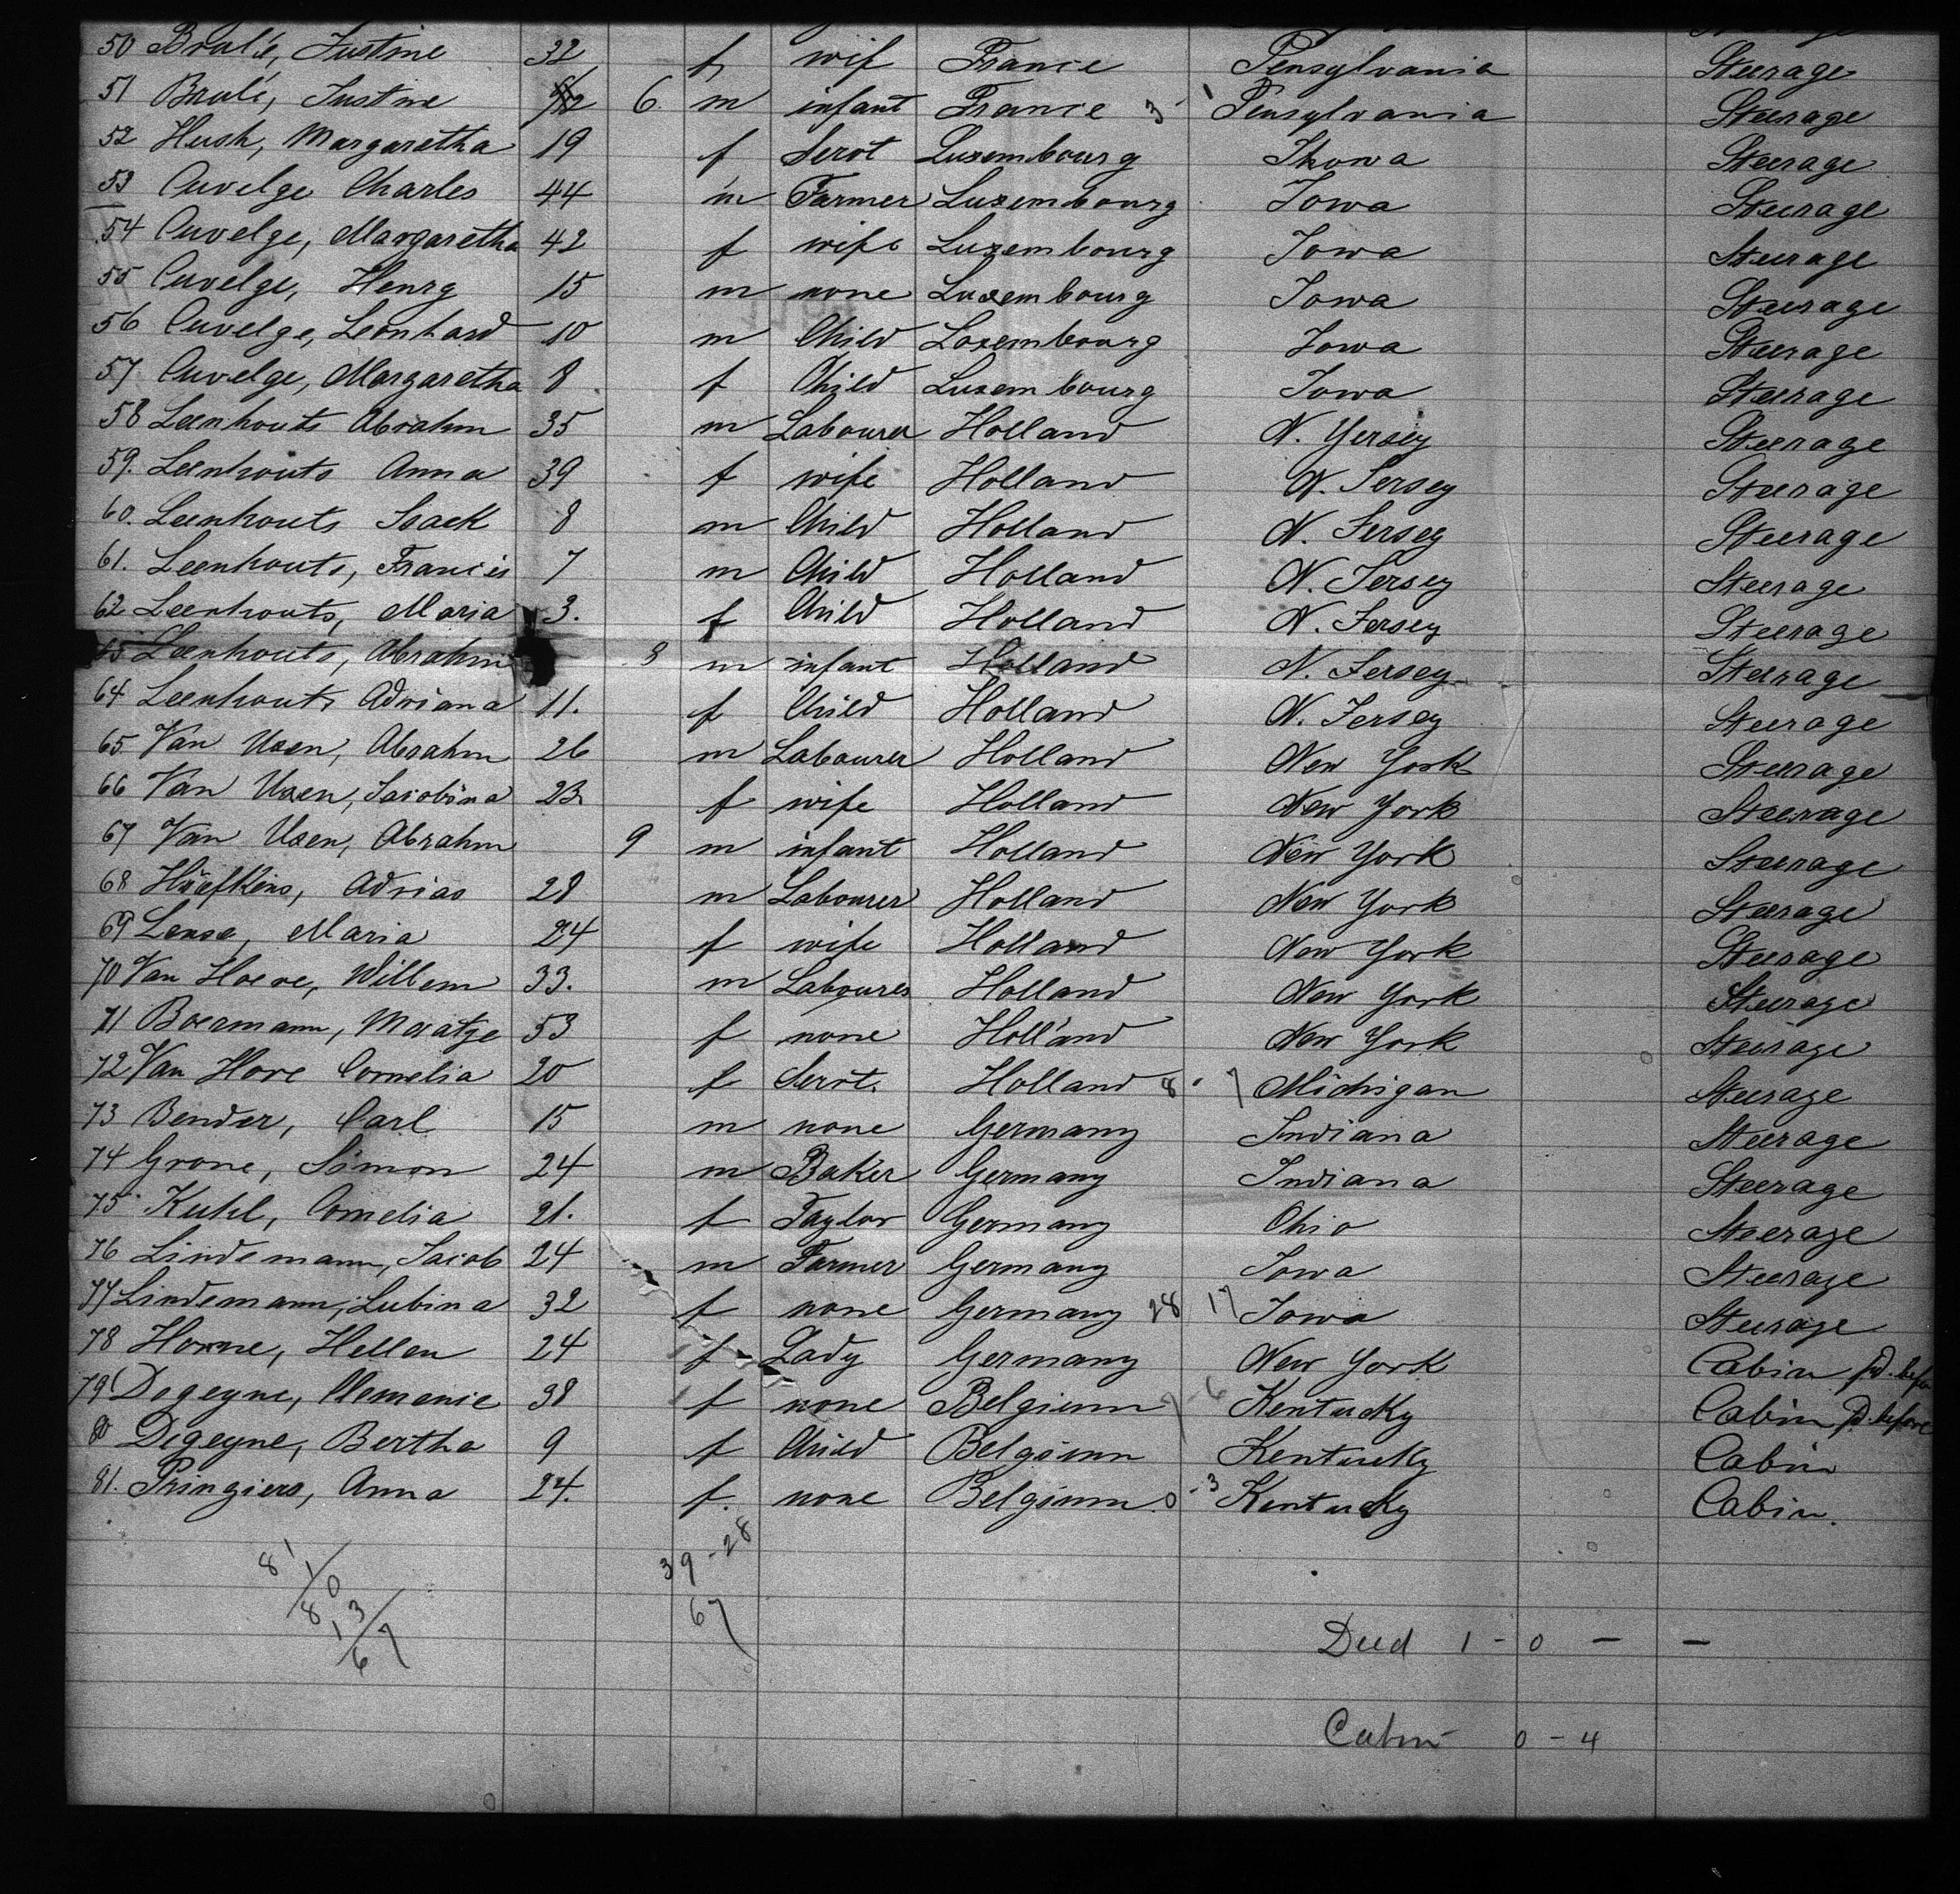 50 Brulé, Justine 32 f wif France Pensylvania Steerage
51 Brulé, Justine 6. m infant France 3 1 Pensylvania Steerage
52 Hush, Margaretha 19 f Servt Luxembourg Ihowa Steerage
53 Cuvelge Charles 44 m Farmer Luxembourg Iowa Steerage
54 Cuvelge, Margaretha 42 f wife Luxembourg Iowa Steerage
55 Cuvelge, Henrg 15 m none Luxembourg Iowa Steerage
56 Cuvelge, Leonhard 10 m Child Luxembourg Iowa Steerage
57 Cuvelge, Margaretha 8 f Child Luxembourg Iowa Steerage
58 Leenhouts Abrahm 35 m Labourer Holland N. Yersey Steerage
59. Leenhouts Anna 39 f wife Holland N. Jersey Steerage
60. Leenhouts Isack 8 m Child Holland N. Jersey Steerage
61. Leenhouts, Francis 7 m Child Holland N. Jersey Steerage
62 Leenhouts, Maria 3. f Child Holland N. Jersey Steerage
Leenhouts, Abrahm 8 m infant Holland N. Jersey Steerage
64 Leenhouts Adriana 11. f Child Holland N. Jersey Steerage
65. Van Uxen, Abrahm 26 m Labourer Holland New York Steerage
66 Van Uxen, Jacobina 23 f wife Holland New York Steerage
67 Van Uxen, Abrahm 9 m infant Holland New York Steerage
68 Adrias 28 m Labourer Holland New York Steerage
69 Lense, Maria 24 f wife Holland New York Steerage
70 Van Hoeve, Willem 33. m Labourer Holland New York Steerage
71 Boermann, Maatge 53 f none Holland New York Steerage
72 Van Hove Cornelia 20 f Servt. Holland 8 7 Michigan Steerage
73 Bender, Carl 15 m none Germany Indiana Steerage
74 Grone, Simon 24 m Baker Germany Indiana Steerage
75 Kuhl, Cornelia 21. f Taylor Germany Ohio Steerage
76 Lindemann, Jacob 24 m Farmer Germany Iowa Steerage
77 Lindemann, Lubina 32 f none Germany 28 17 Iowa Steerage
78 Horne, Hellen 24 f Lady Germany New York Cabin
79 Degeyne, Clemenie 38 f none Belgium 7-6 Kentucky Cabin
80 Degeyne, Bertha 9 f Child Belgium Kentucky Cabin
81. Pringiers, Anna 24. f. none Belgium 0-3 Kentucky Cabin.
81 39-28
1
80
13 67
67
Died 1 - 0 - -
Cabin 0 - 4